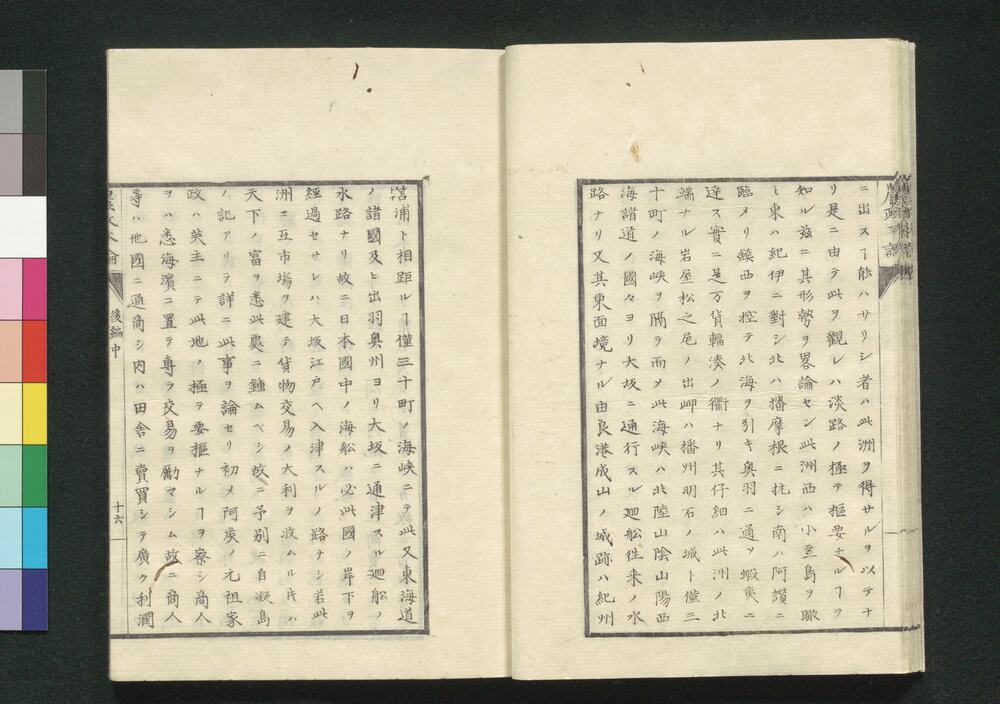 ニ出スヿ能ハサリシ者ハ此洲ヲ得サルヲ以テナ
リ是ニ由テ此ヲ觀レハ淡路ノ極テ樞要ナルヿヲ
知ル茲ニ其形勢ヲ畧論セン此洲西ハ小豆島ヲ瞰
ミ東ハ紀伊ニ對シ北ハ播摩根ニ抗シ南ハ阿讃ニ
臨メリ鎮西ヲ控テ北海ヲ引キ奥羽ニ通ソ蝦夷ニ
達ス實ニ是万貨輻湊ノ衢ナリ其仔細ハ此洲ノ北
端ナル岩屋松之尾ノ出岬ハ播州明石ノ城ト僅三
十町ノ海峡ヲ隔ラ而メ此海峡ハ北陸山陰山陽西
海諸道ノ國々ヨリ大坂ニ通行スル廻舩徃来ノ水
路ナリ又其東面境ナル由良港成山ノ城跡ハ紀州
浦ト相距ルヿ僅三十町ノ海峡ニテ此又東海道
ノ諸國及ヒ出羽奥州ヨリ大坂ニ通津スル廻舩ノ
水路ナリ故ニ日本國中ノ海舩ハ必此國ノ岸下ヲ
經過セサレハ大坂江戸ヘ入津スルノ路ナシ若此
洲ニ互市場ヲ建テ貨物交易ノ大利ヲ收ムル𪜈ハ
天下ノ富ヲ悉此處ニ鍾ムヘシ故ニ予別ニ自凝島
ノ記アリテ詳ニ此事ヲ論セリ初メ阿矦ノ元祖家
政ハ英主ニテ此地ノ極テ要樞ナルヿヲ察シ商人
ヲハ悉海濱ニ置テ専ラ交易ヲ勵マシム故ニ商人
等ハ他國ニ通商シ内ハ田舎ニ賣買シテ廣ク利潤
後編中
十六